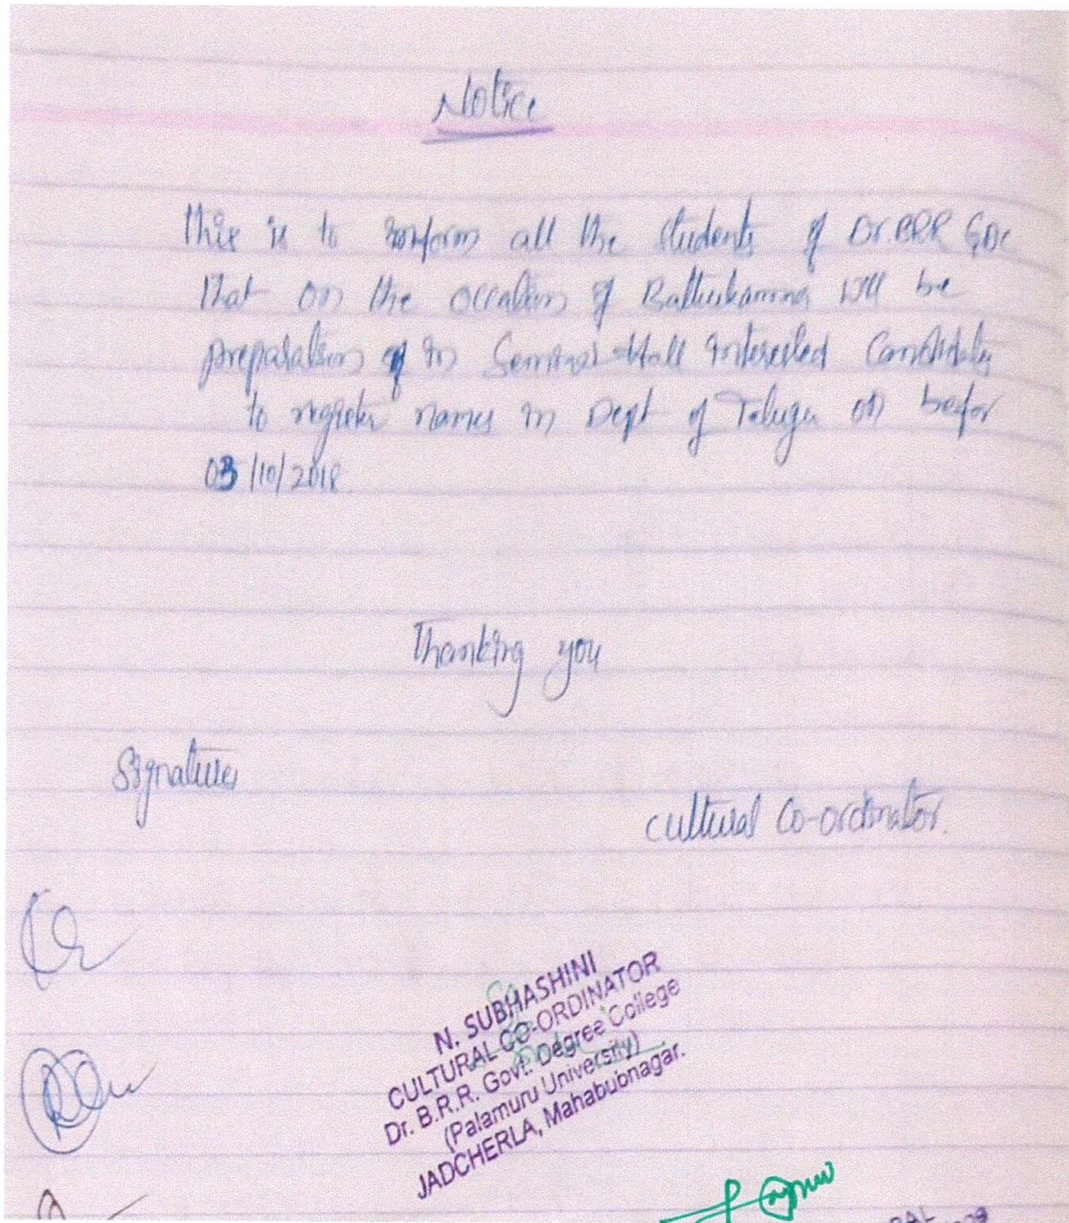 Notice
this is to inform all the students of Dr.BRR GDC
that on the occation of Bathukamma will be
preparation of in Seminar Hall interested Candidates
to register names in Dept of Telugu on befor
03/10/2018.
Thanking you
Signatures
cultural Co-ordinator.
N. SUBHASHINI
CULTURAL CO-ORDINATOR
Dr. B.R.R. Govt. Degree College
(Palamuru University)
JADCHERLA, Mahabubnagar.